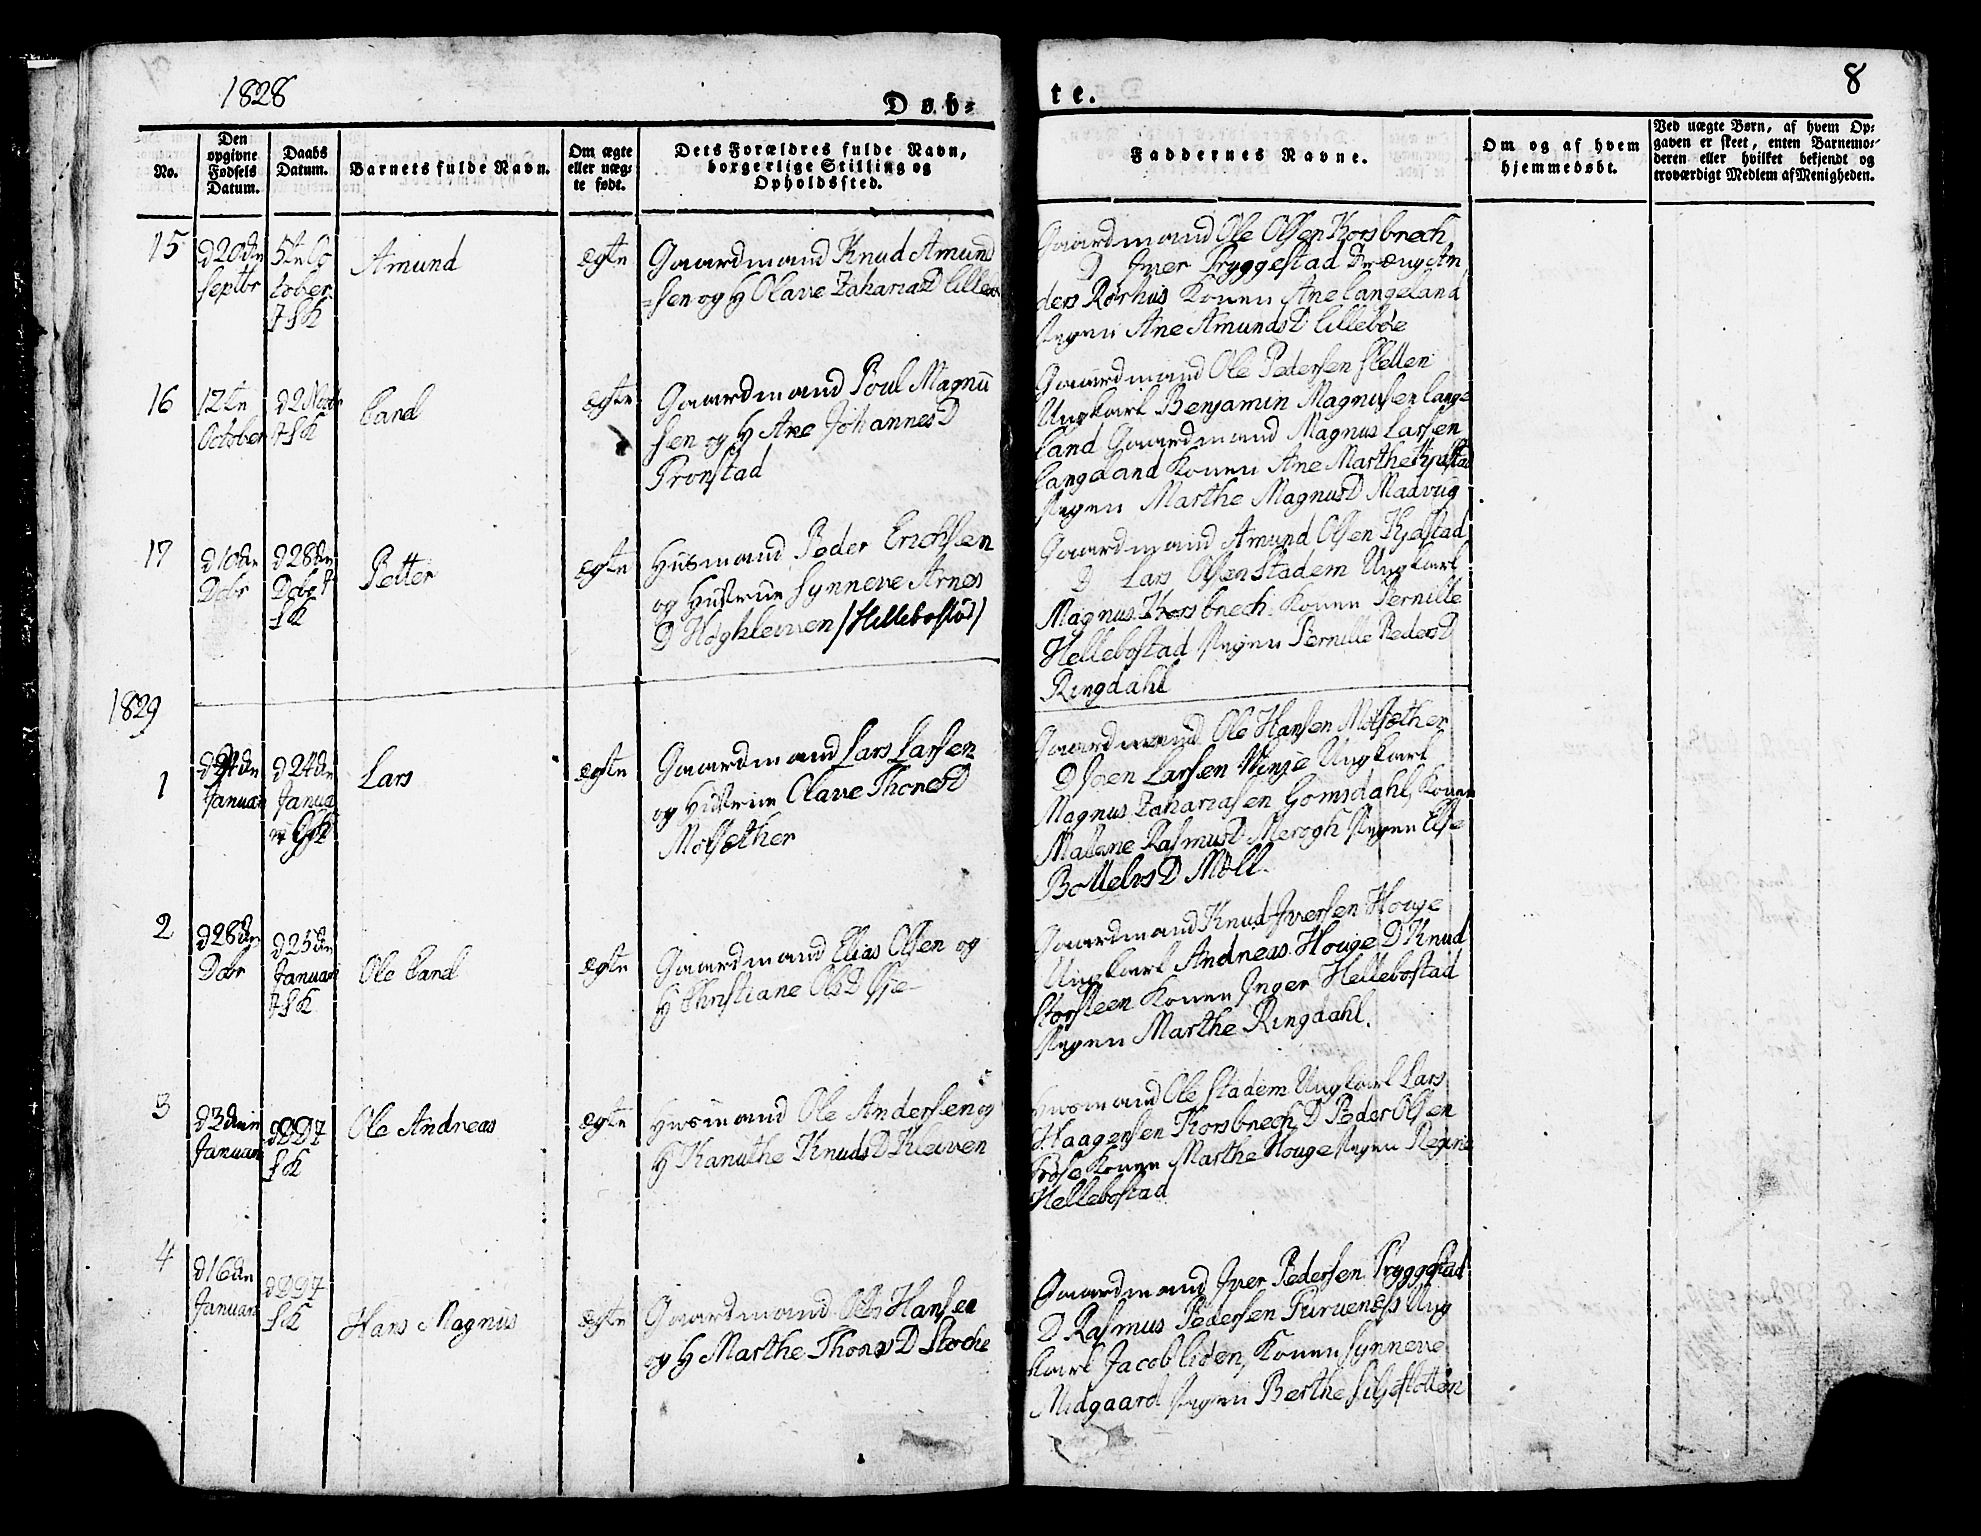 1828
Døb=
te.
8
No.
Den
opgivne
Fødsels
Datum.
Daabs
Datum.
Barnets fulde Navn.
Om ægte
eller uæg-
te født.
Dets Forældres fulde Navn,
borgerlige Stilling og
Opholdssted.
Faddernes Navne.
Om og af hvem
hjemmedøbt.
Ved uægte Børn, af hvem Op-
gaven er skeet, enten Barnemo-
deren eller hvilket bekjendt og
troværdigt Medlem af Menigheden.
15
d 20de
Septbr
5te Oc
tober
Amund
ægte
Gaardmand Knud Amund
=sen og H Olave ZahariasD Lillebøe
Gaardmand Ole Olsen Korsbrech
D Iver Tryggestad Dræng An
ders Rørhus Konen Ane Langeland
Pigen Ane AmundsD Lillebøe
16
12te
October
d 2 Novbr
Carl
ægte
Gaardmand Poul Magnu
sen og H Ane JohannesD
Tronstad
Gaardmand Ole Pedersen Sletten
Ungkarl Benjamin Magnusen Lange
land Gaardmand Magnus Larsen
Langeland Konen Ane Marthe
Pigen Marthe MagnusD
17
d 10de
Dcbr
d 28de
Dcbr
Petter
ægte
Husmand Peder Erichsen
og Hustrue Synneve Arnes
D Høghleiven /Hellebostad/
Gaardmand Amund Olsen
D Lars Olsen Stadem Ungkarl
Magnus Korsbrech Konen Pernille
Hellebostad Pigen Pernille PedersD
Ringdahl
1829
1
Januari
d 24de
Janua
Lars
ægte
Gaardmand Lars Larsen
og Hustrue Olave ThoresD
Molsether
Gaardmand Ole Hansen Molsether
D Joen Larsen Winje Ungkarl
Magnus Zahariasen Gomsdahl, Konen
Malene RasmusD Merogh Pigen Else
BottelvsD Moll
2
d 28de
Dcbr
d 25de
Januari
Ole Carl
ægte
Gaardmand Elias Olsen og
H Christiane OlsD
Gaardmand Knud Iversen Houge
Ungkarl Andreas Houge D Knud
Storsteen Konen Inger Hellebostad
Pigen Marthe Ringdahl.
3
Januari
Ole Andreas
ægte
Husmand Ole Andersen og
H Kanuthe KnudsD Kleiven
Husmand Ole Stadem Ungkarl Lars
Haagensen Korsbrech D Peder Olsen
Konen Marthe Houge Pigen Regine
Hellebostad
4
d 16de
Januari
Hans Magnus
ægte
Gaardmand Ole Hansen
og H Marthe D Stoche
Gaardmand Iver Pedersen Tryggestad
D Rasmus Pedersen Ung
karl Jacob Liden, Konen Synneve
Midgaard Pigen Berthe